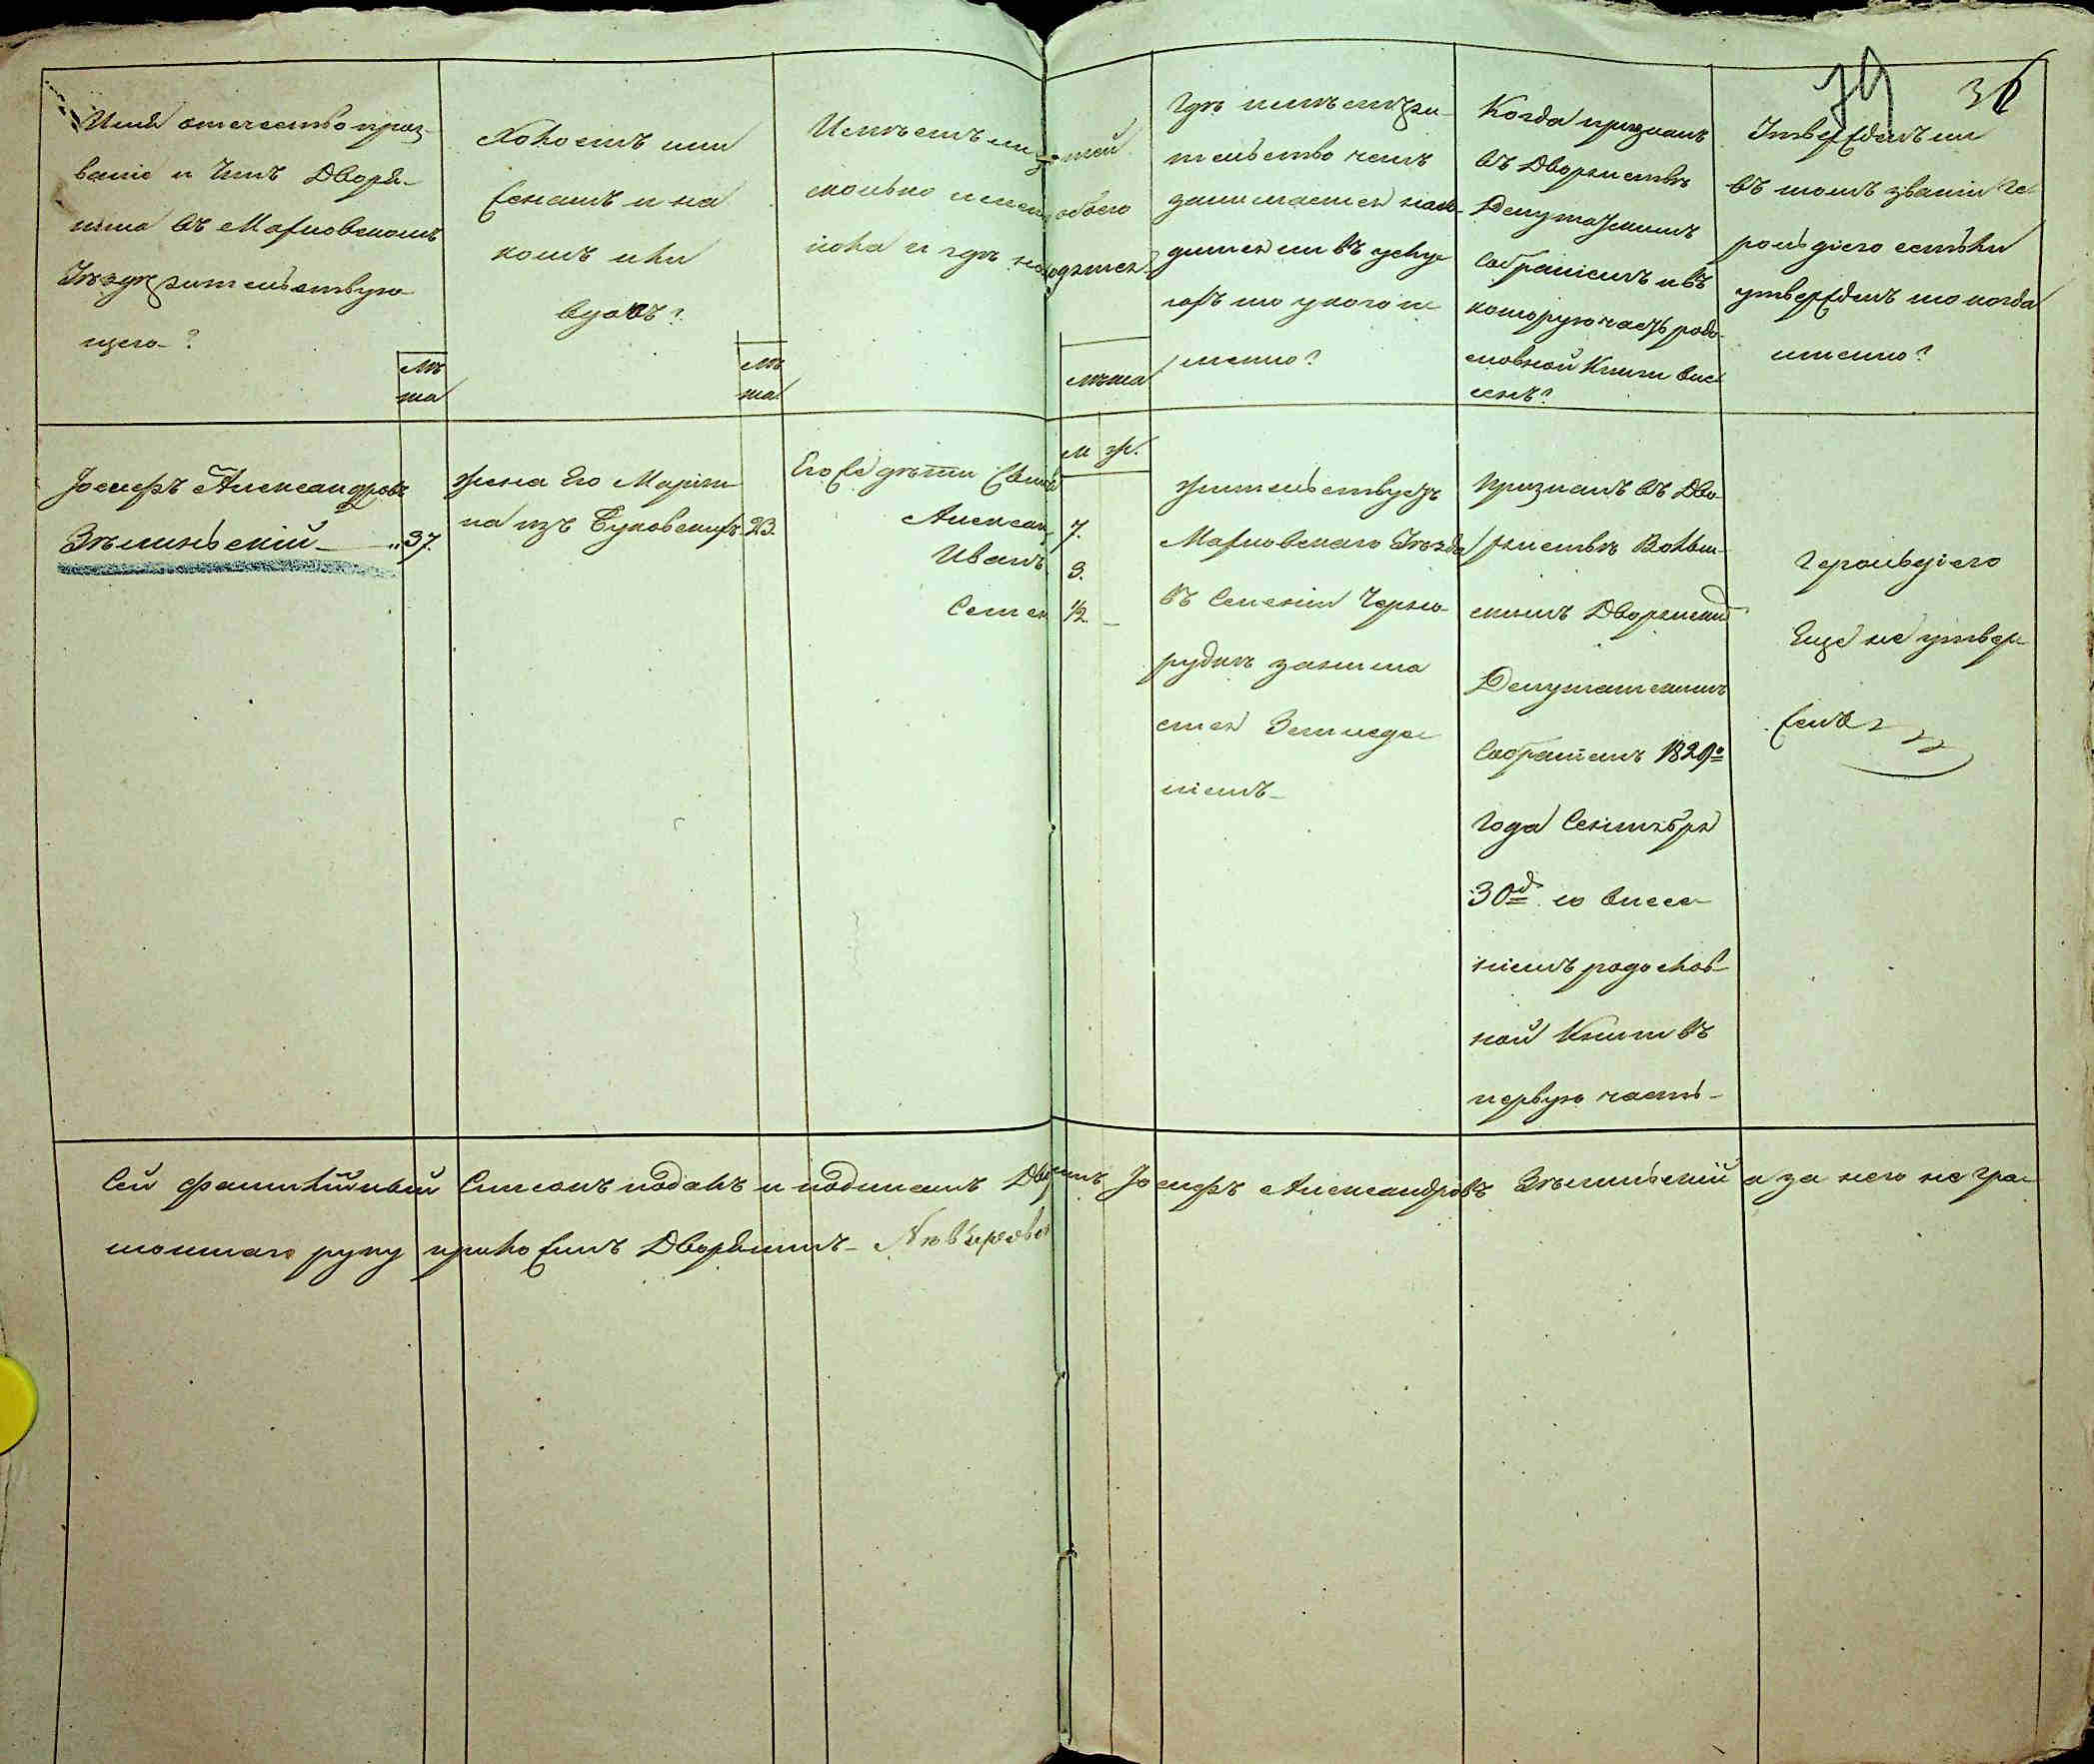 79 36
Имя отечество проз-
ваніе и Чинъ Дворя-
нина въ Марковскомъ
Уѣздѣ жительствую
щего?
лѣ
та
Холостъ или
женатъ и на
комъ или
вдовъ?
лѣ
та
Имѣетъ ли дѣтей
сколько именно обоего
пола и гдѣ находятся
лѣта
м ж.
Гдѣ имѣетъ жи-
тельство чемъ
занимается нахо-
дится ли въ услу
гахъ то у кого и
менно?
Когда признанъ
въ Дворянствѣ
Депутатскимъ
Собраніемъ и въ
которую часть родо-
словной Книги вне
сенъ?
Утвержденъ ли
въ томъ званіи Ге
рольдіею естьли
утвержденъ то когда
именно?
Іосифъ Александровъ
Зѣлинскій 37.
жена Его Маріян
на изъ Буковскихъ 23.
Его же дѣти Сынов
Александ 7.
Иванъ 3.
Семен 1/2
жительствуетъ
Марковскаго Уѣзда
въ Селеніи Черно-
рудкѣ занима
ется Земледе
ліемъ
признанъ въ Дво-
рянствѣ Волын-
скимъ Дворянским
Депутатскимъ
Собраніемъ 1829го
Года Сентября
30д. со внесе
ніемъ родослов-
ной Книги въ
первую часть
Герольдіею
Еще не утвер-
жденъ
Сей фамилійный Списокъ подалъ и подписалъ Дворянинъ Іосифъ Александровъ Зѣлинскій а за него не гра-
мотнаго руку приложилъ Дворянинъ